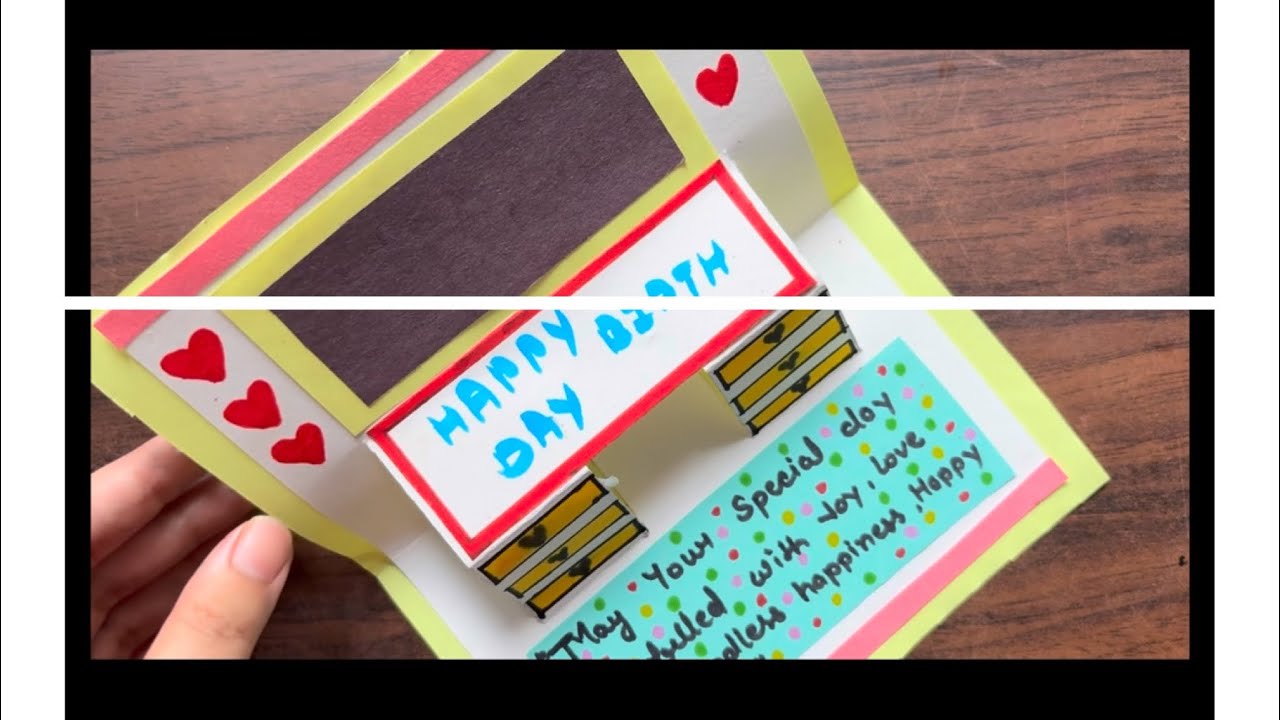 HAPPY BIRTH
DAY
May Your Special day
be filled with Joy, love
endless happiness, Happy